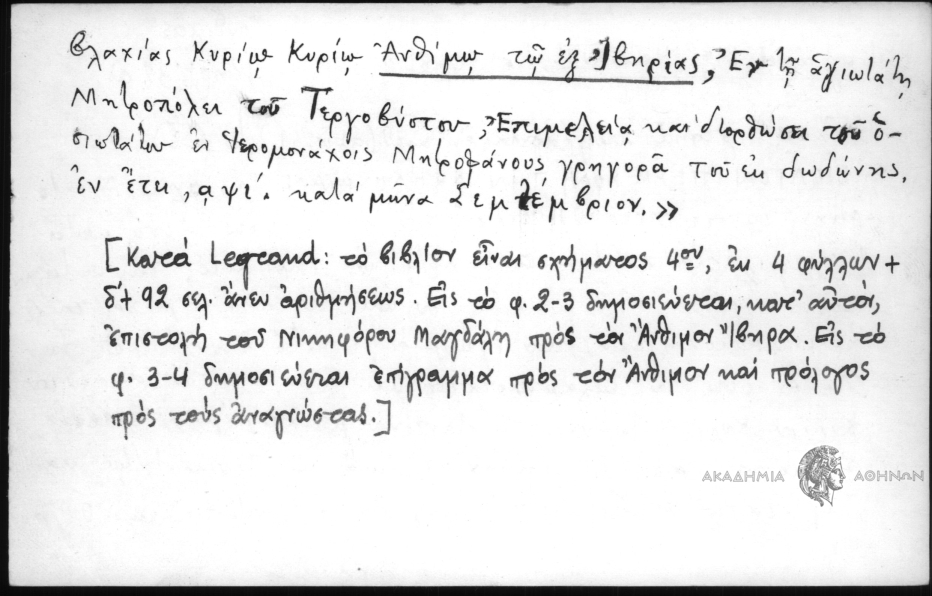 βλαχίας Κυρίῳ Κυρίῳ Ἀνθίμῳ τῷ ἐξ Ἰβηρίας, Ἐν τῇ ἁγιωτάτῃ
Μητροπόλει τοῦ Τεργοβύστου, Ἐπιμελείᾳ καὶ διορθώσει τοῦ ὁ-
σιωτάτου ἐν Ἱερομονάχοις Μητροφάνους γρηγορᾶ τοῦ ἐκ δωδώνης.
ἐν ἔτει ͵αψί. κατά μῆνα Σεμτέμβριον.»
[Κατά Legrand: τό βιβλίον εἶναι σχήματος 4ου, ἐκ 4 φύλλων +
δ΄+ 92 σελ. ἄνευ ἀριθμήσεως. Εἰς τό φ. 2-3 δημοσιεύεται, κατ' αὐτόν,
ἐπιστολή τοῦ Νικηφόρου Μαγδάλη πρός τόν Ἄνθιμον Ἴβηρα. Εἰς τό
φ. 3-4 δημοσιεύεται ἐπίγραμμα πρός τόν Ἄνθιμον καί πρόλογος
πρός τούς ἀναγνώστας.]
ΑΚΑΔΗΜΙΑ ΑΘΗΝΩΝ